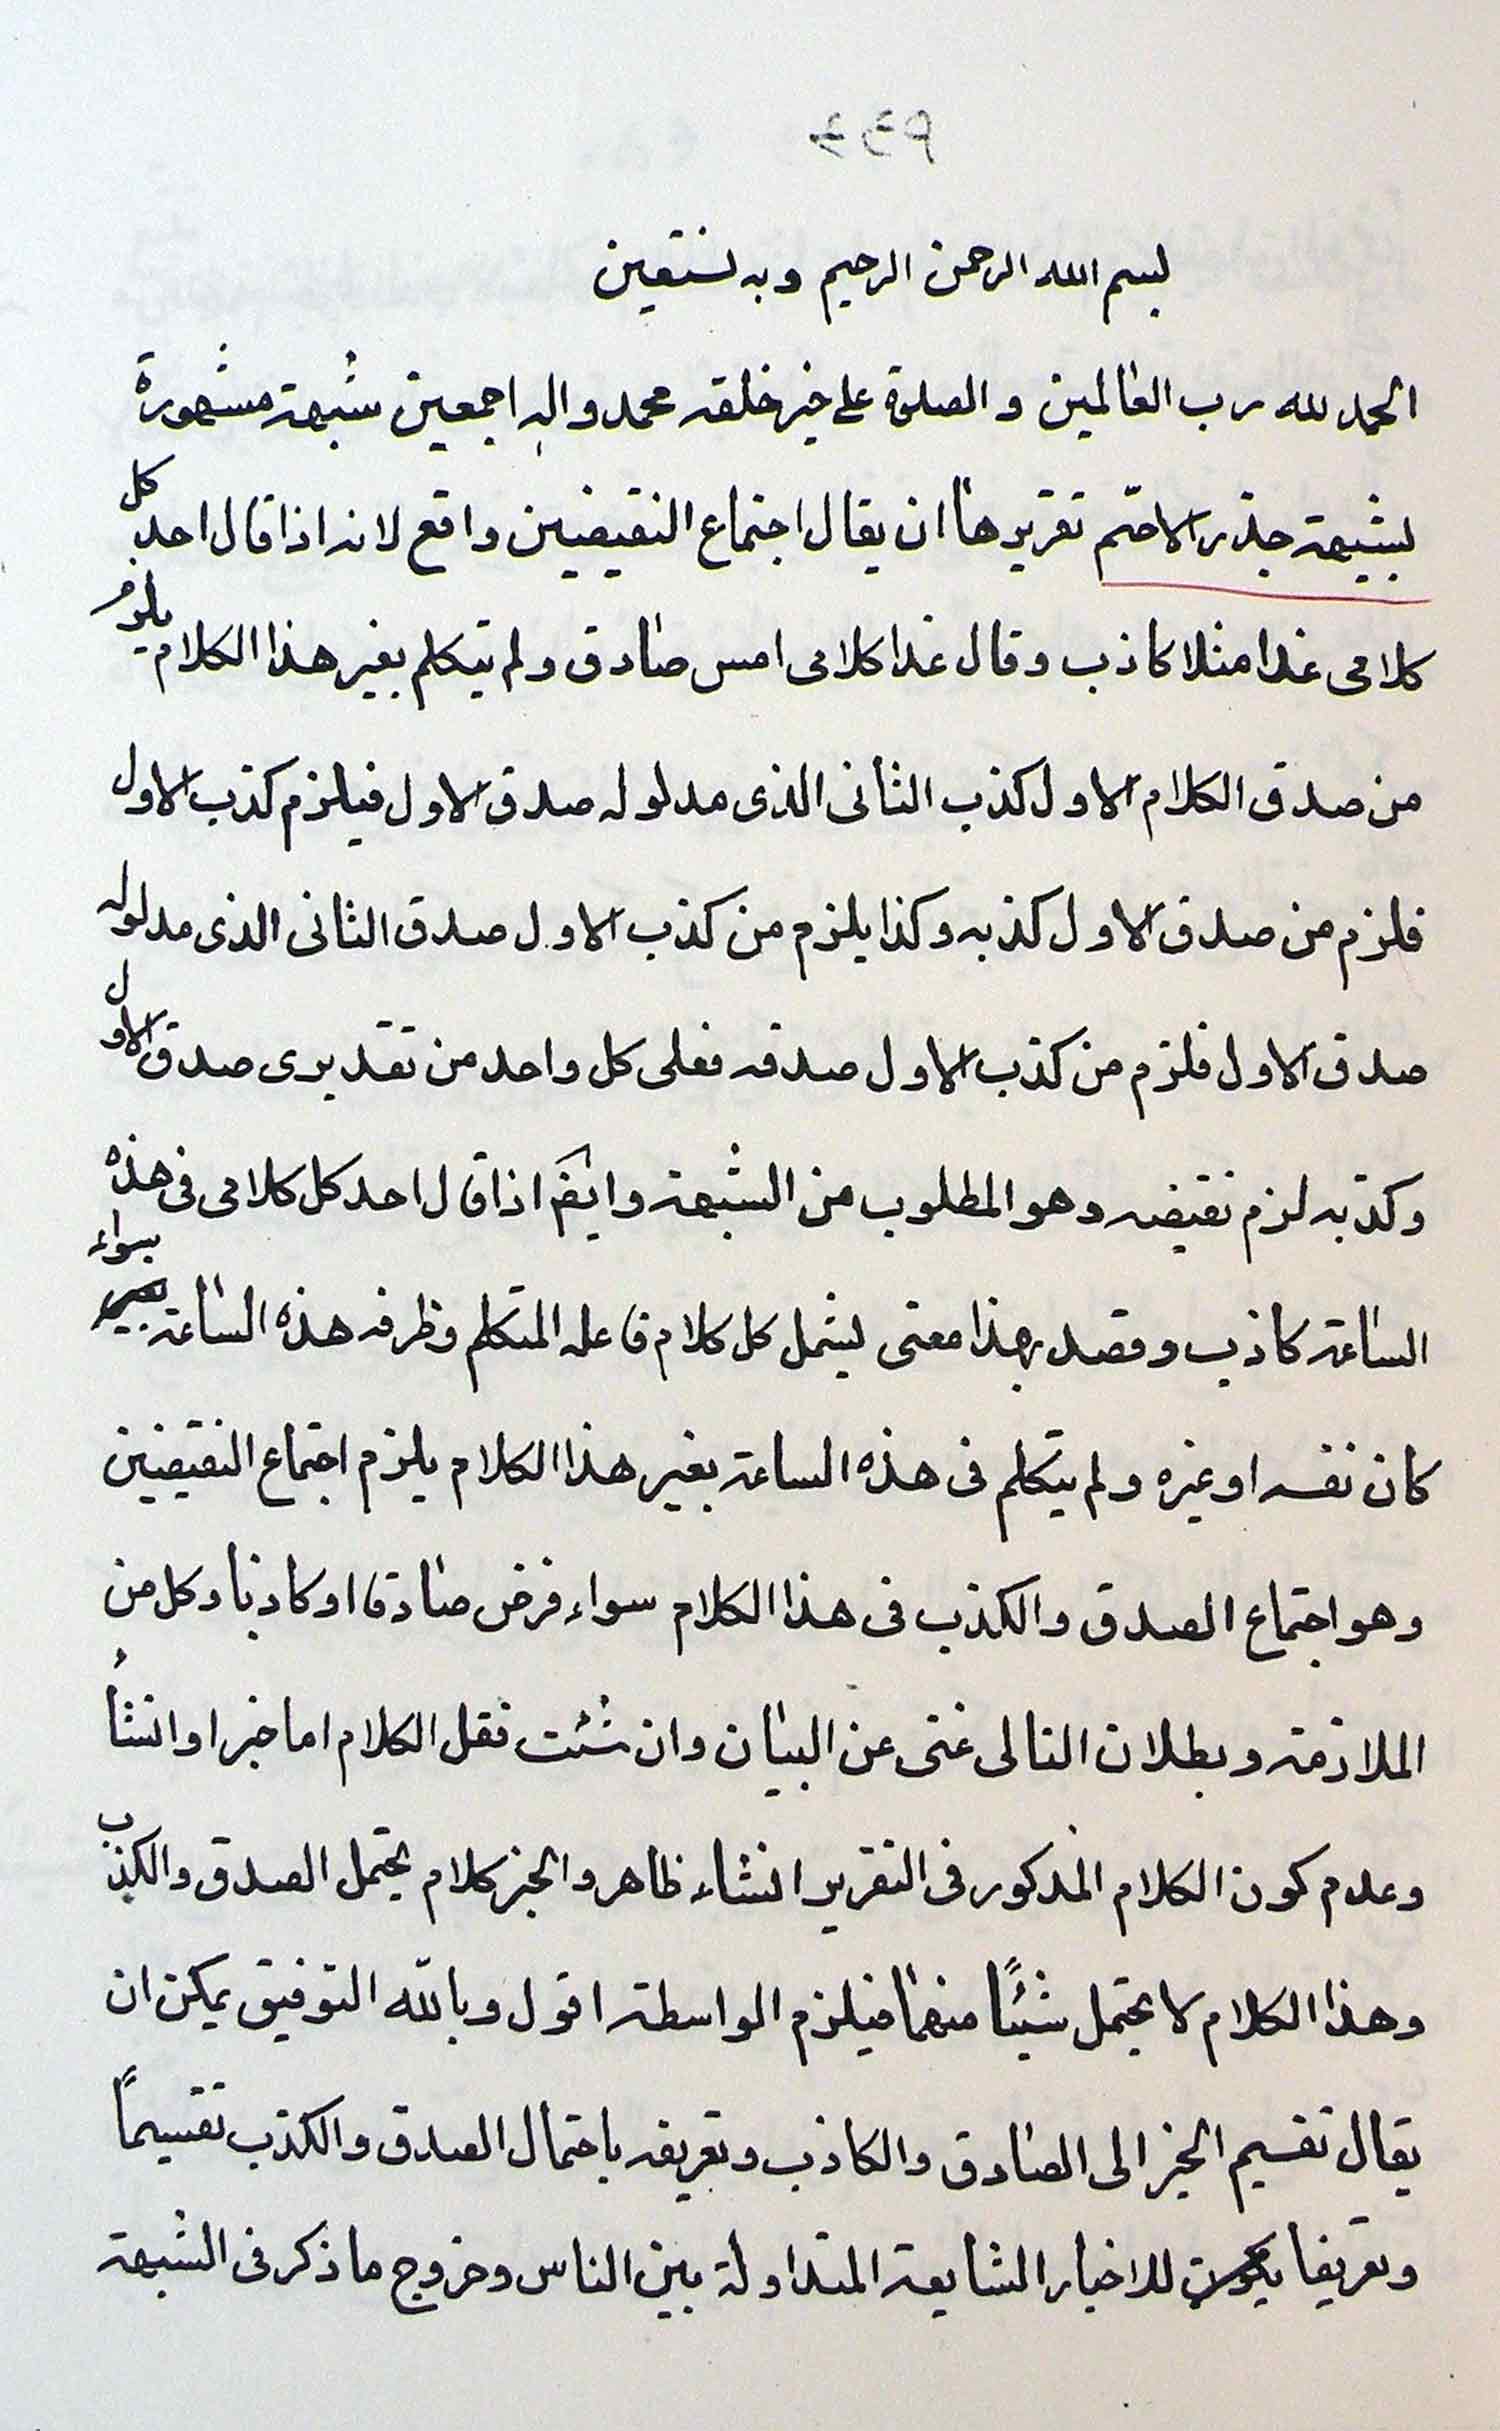 بسم الله الرحمن الرحيم وبه نستعين
الحمد لله رب العالمين والصلوة على خير خلقه محمد واله اجمعين شبهة مشهورة
بشبهة جذر الاصم تقريرها ان يقال اجتماع النقيضين واقع لانه اذا قال احد كل
كلامى غدا مثلا كاذب وقال غدا كلامى امس صادق ولم يتكلم بغير هذا الكلام يلزم
من صدق الكلام الاول كذب الثانى الذى مدلوله صدق الاول فيلزم كذب الاول
فلزم من صدق الاول كذبه وكذا يلزم من كذب الاول صدق الثانى الذى مدلوله
صدق الاول فلزم من كذب الاول صدقه فعلى كل واحد من تقديرى صدق الاول
وكذبه لزم نقيضه وهو المطلوب من الشبهة وايضا اذا قال احد كل كلامى فى هذه
الساعة كاذب وقصد بهذا معنى يشمل كل كلام فاعله المتكلم وظرفه هذه الساعة سواء
كان نفسه او غيره ولم يتكلم فى هذه الساعة بغير هذا الكلام يلزم اجتماع النقيضين
وهو اجتماع الصدق والكذب فى هذا الكلام سواء فرض صادقا او كاذبا وكل من
الملازمة وبطلان التالى غنى عن البيان وان شئت فقل الكلام اما خبر او انشاء
وعدم كون الكلام المذكور فى التقرير انشاء ظاهر والخبر كلام يحتمل الصدق والكذب
وهذا الكلام لا يحتمل شيئًا منهما فيلزم الواسطة اقول وبالله التوفيق يمكن ان
يقال تقسيم الخبر الى الصادق والكاذب وتعريفه باحتمال الصدق والكذب تقسيمًا
وتعريفا للاخبار الشايعة المتداولة بين الناس وخروج ما ذكر فى الشبهة